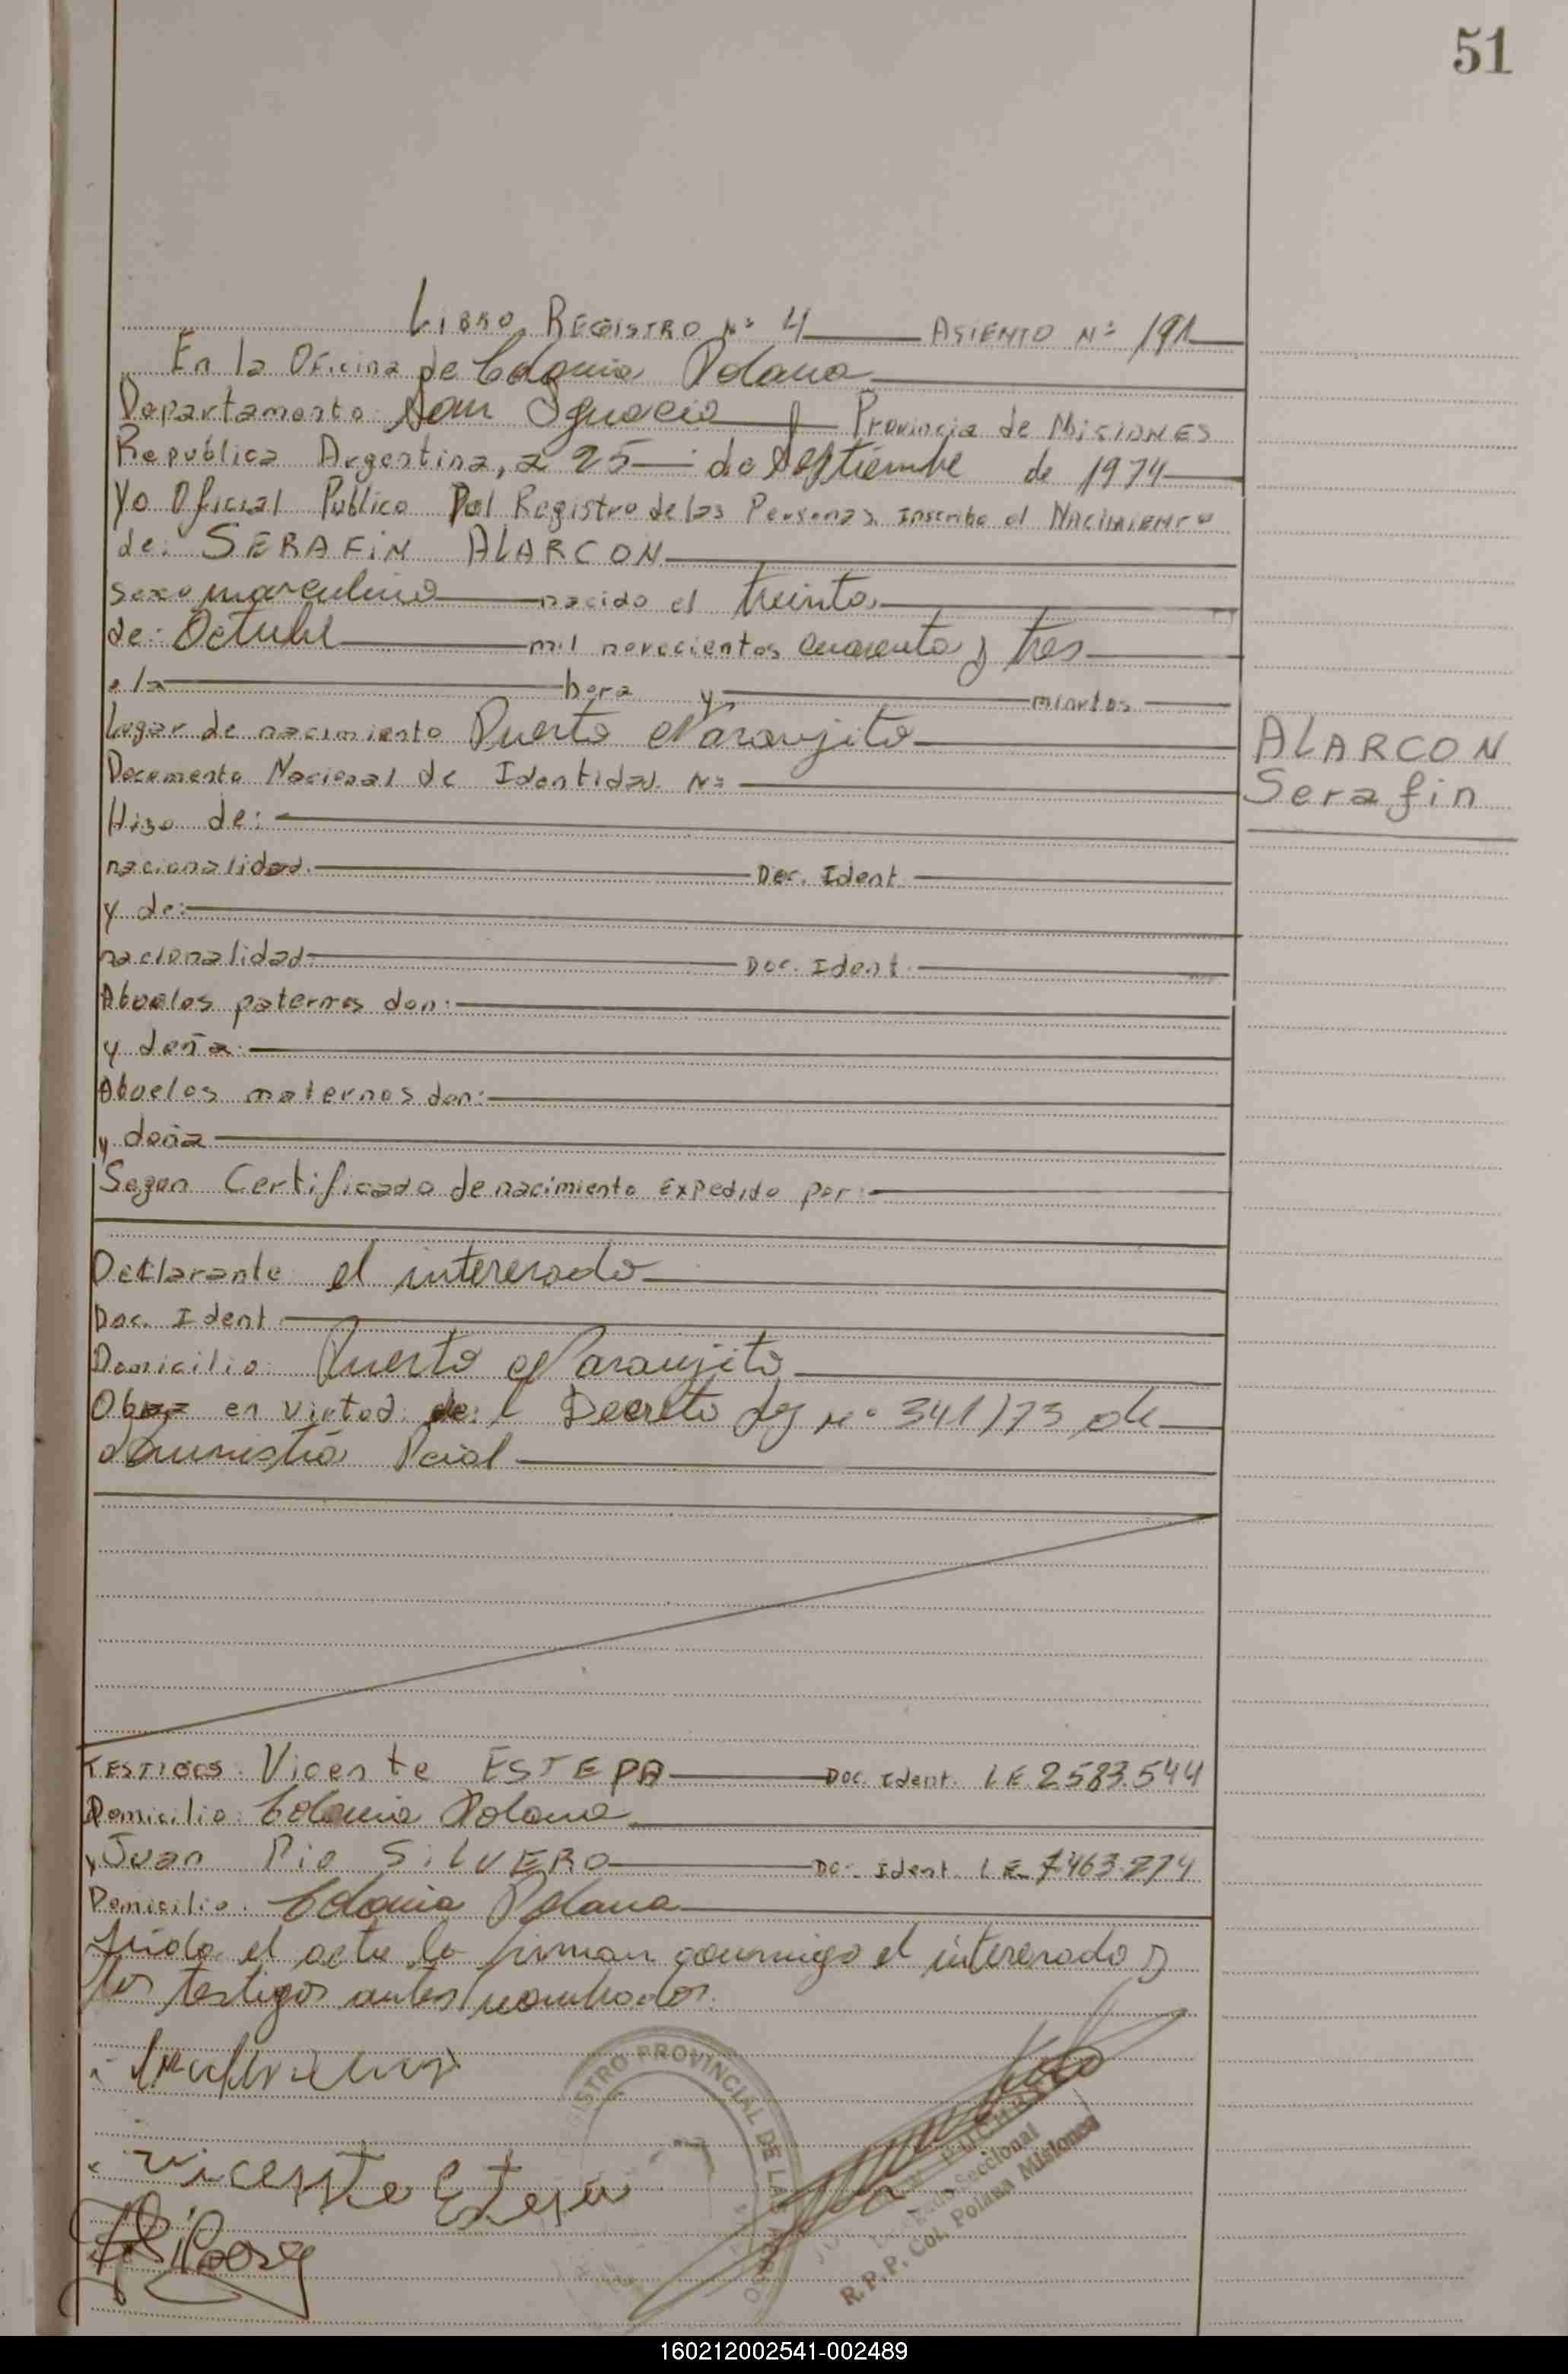 51
LIBRO REGISTRO Nº 4 ASIENTO Nº 191
En la Oficina de Colonia Polana
Departamento San Ignacio Provincia de MISIONES
Republica Argentina, a 25 de Septiembre de 1974
Yo Oficial Publico Del Registro de las Personas inscribo el NACIMIENTO
de: SERAFIN ALARCON
sexo masculino nacido el treinta
de: Octubre mil novecientos cuarenta y tres
a la hora y minutos
Lugar de nacimiento Puerto Naranjito
ALARCON
Serafin
Documento Nacional de Identidad Nº
Hijo de:
nacionalidad Doc. Ident
y de:
nacionalidad Doc. Ident
Abuelos paternos don:
y doña
Abuelos maternos don:
y doña
Segun Certificado de nacimiento Expedido por:
Declarante el interesado
Doc. Ident
Domicilio: Puerto Naranjito
Obra en virtud de: l Decreto Ley Nº 341/73 de
Amnistia Pcial
TESTIGOS: Vicente ESTEPA Doc. Ident. LE 2583.544
Domicilio: Colonia Polana
y Juan Pio SILVERO Doc. Ident. LE 7.463.274
Domicilio: Colonia Polana
Leida el acta la firman conmigo el interesado y
los testigos antes nombrados.
Vicente Estepa
REGISTRO PROVINCIAL DE LAS
Seccional
R.P.P. Col. Polana Misiones
160212002541-002489